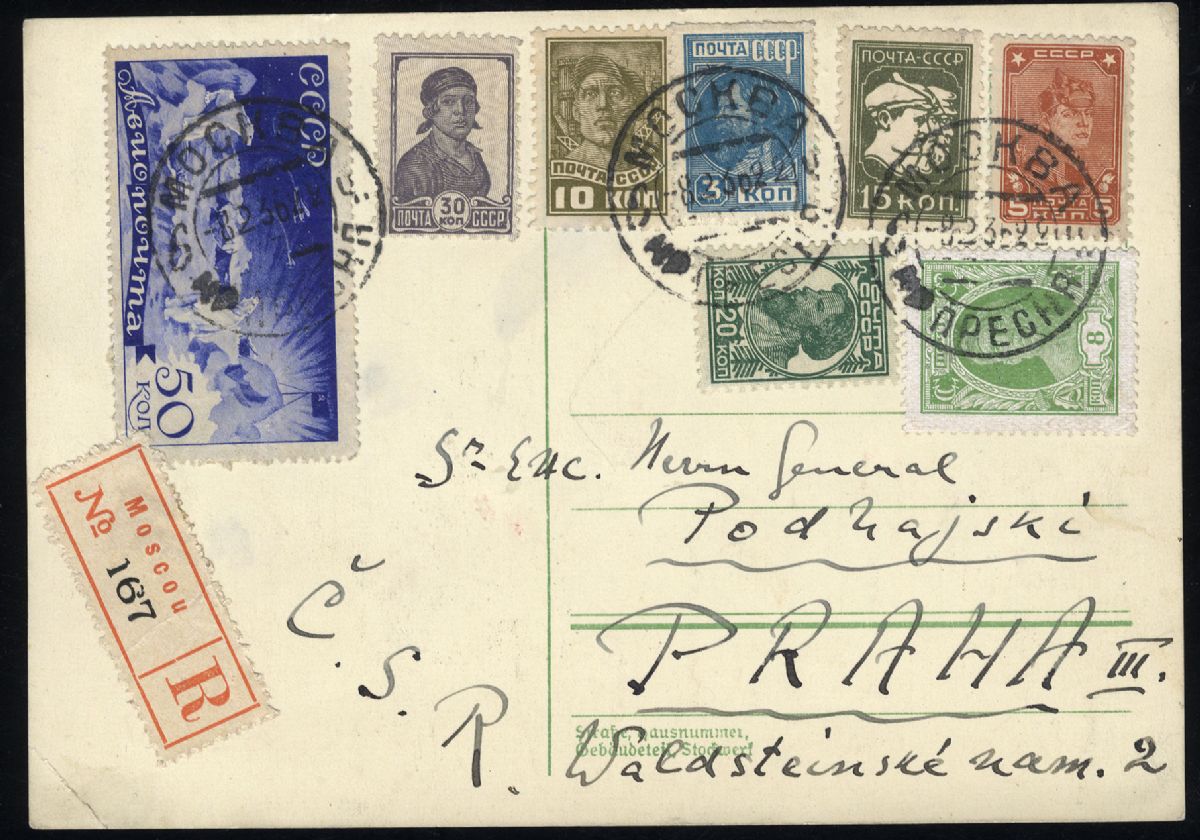 СССР
Авиопочта
50
КОП
30
КОП
ПОЧТА СССР
ПОЧТА СССР
10 КОП
ПОЧТА СССР
3 КОП
ПОЧТА-СССР
15 КОП
СССР
5 5
ПОЧТА СССР
20 КОП
8
КОП
МОСКВА
МОСКВА
МОСКВА
ПРЕСНЯ
Moscou
№ 167
R
Sr. Exc. Herrn General
Podhajski
PRAHA III.
Waldsteinské nám. 2
Č. S. R.
Straße, Hausnummer,
Gebäudeteil, Stockwerk